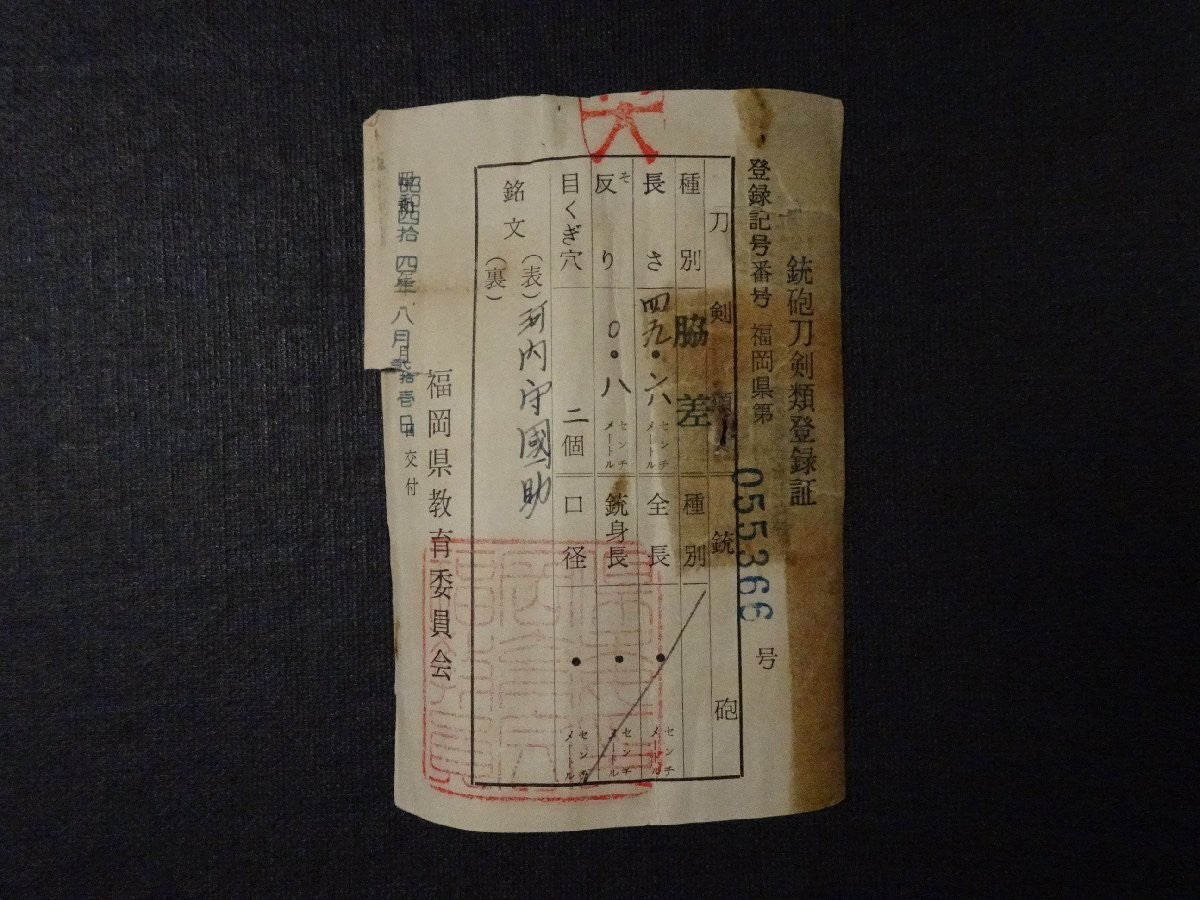 銃砲刀剣類登録証
登録記号番号 福岡県第 055366 号
刀剣類 銃砲
種別 脇差 種別
長さ 四九・六 センチメートル 全長 ・ センチメートル
反り 〇・八 センチメートル 銃身長 ・ センチメートル
そ
目くぎ穴 二個 口径 ・ センチメートル
銘文 (表) 河内守國助
(裏)
福岡県教育委員会
昭和四拾四年八月弐拾壱日 交付